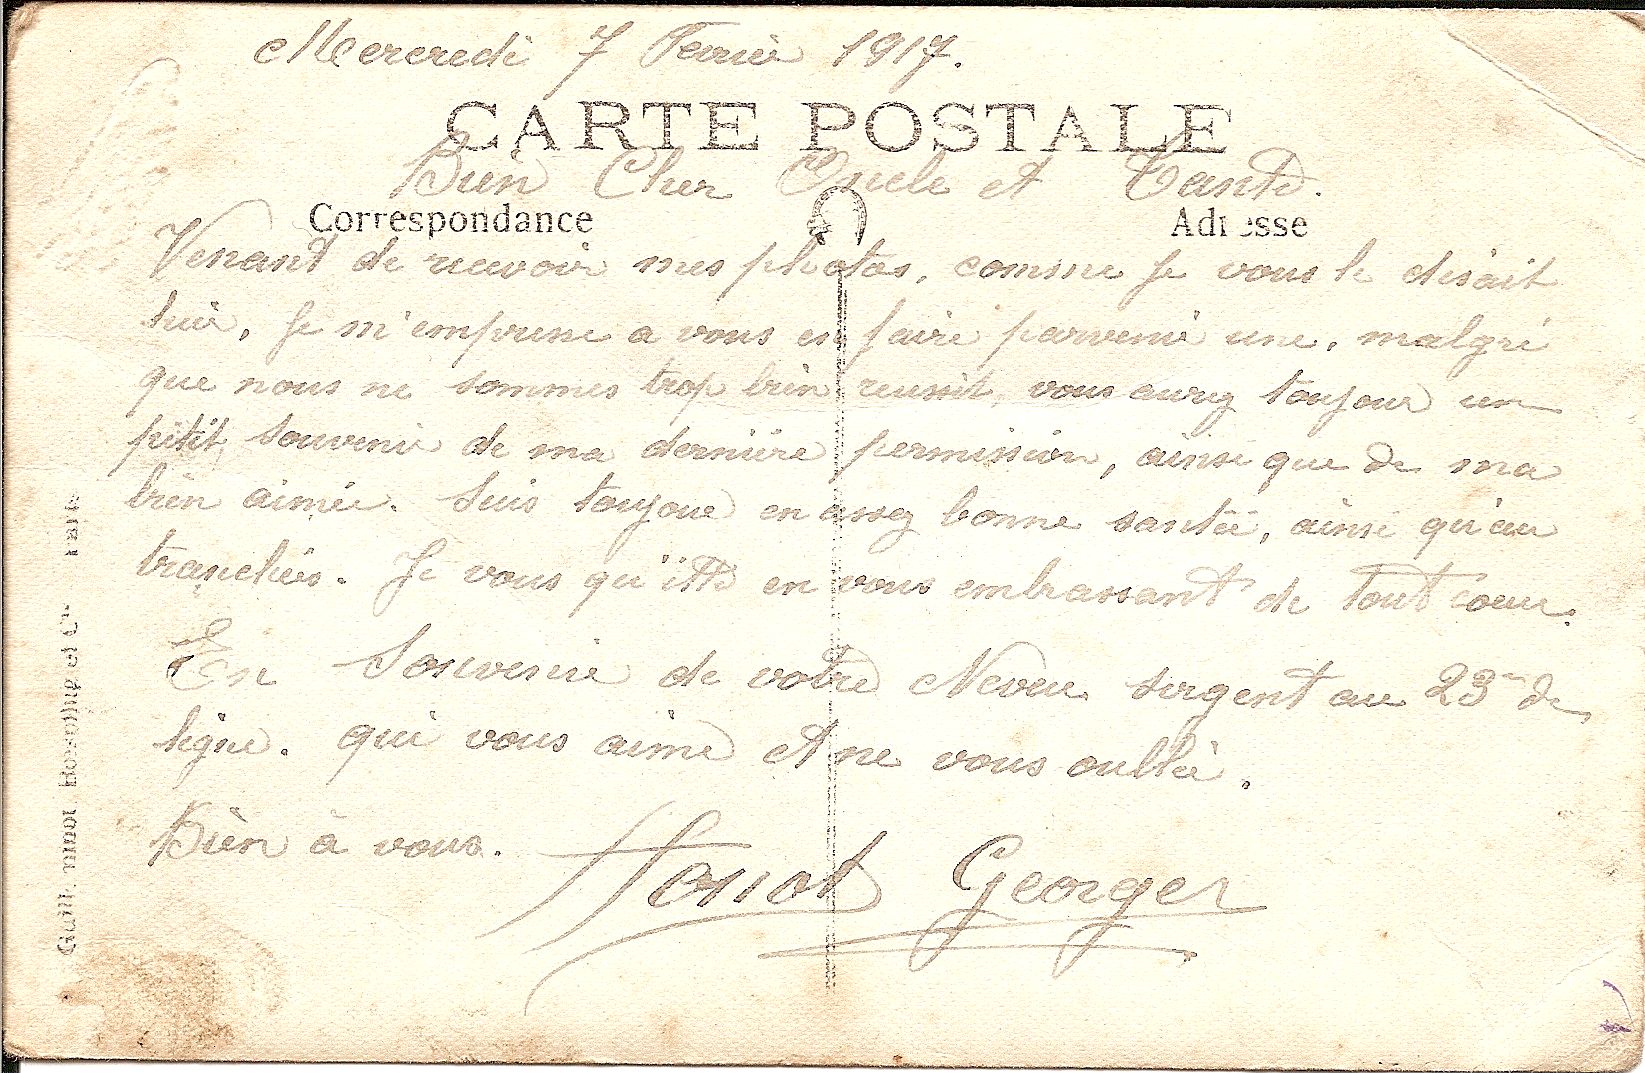 Mercredi 7 Fevrier 1917.
CARTE POSTALE
Bien Cher Oncle et Tante.
Correspondance
Adresse
Venant de recevoir mes photos, comme je vous le disait
hier, je m'empresse a vous en faire parvenir une, malgré
que nous ne sommes trop bien reussit, vous aurez toujour un
pétit souvenir de ma dernière permission, ainsi que de ma
bien aimée. Suis toujour en assez bonne santée, ainsi qu'au
tranchées. Je vous qu'itte en vous embrassant de tout cœur.
En Souvenir de votre Neveu sergent au 23 de
ligne. qui vous aime et ne vous oublie.
Bien à vous.
Georges
Guilleminot, Bœspflug et Cie Paris